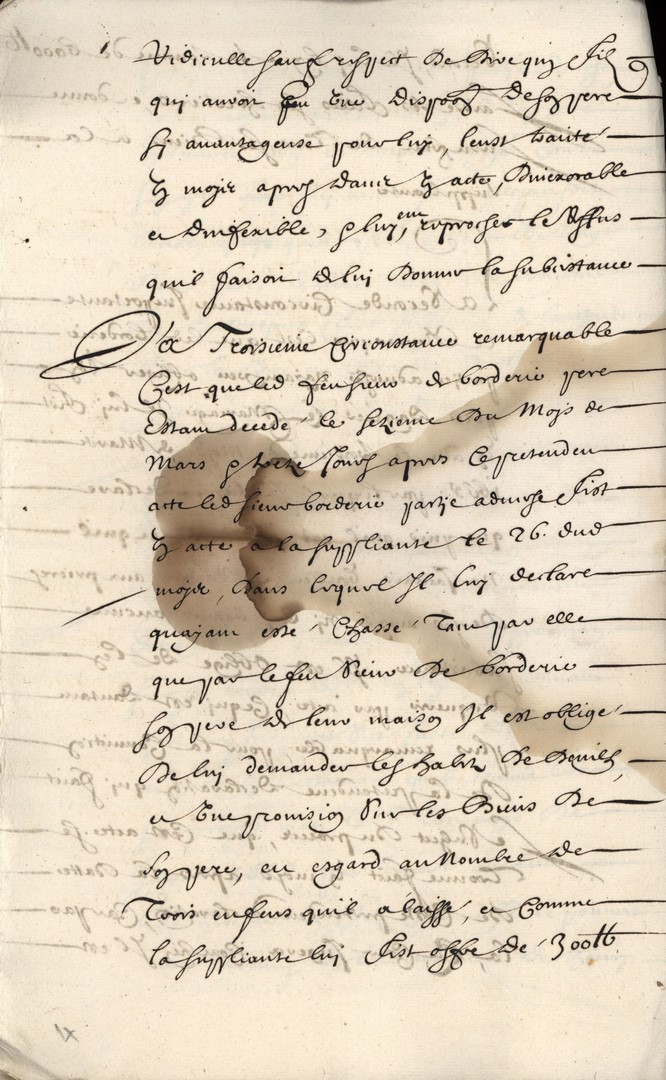 Ridiculle sauf respect de dire qun fil
qui auroit eu une dispoon de son pere
sy auantageuse pour luy, leust traité
un mois apres dans un acte, dinexorable
et dinflexible, et luy eut, reproché le reffus
quil faisoit de lui donner la subcistance
La Troisieme circonstance remarquable
Cest que led feu sieur de borderie pere
Estant decede le sezieme du Mois de
Mars et treze jours apres ce pretendu
acte led sieur borderie partie aduerse fist
un acte a la suppliante le 26. dud
mois, dans lequel Il luy declare
quayant esté chassé tant par elle
que par le feu sieur de borderie
son pere de leur maison Il est oblige
de lui demander les habits de deuil,
et une prouision sur les biens de
son pere, eu esgard au nombre de
Trois enfens quil a laissé, et comme
la suppliante lui fist offre de 300tt